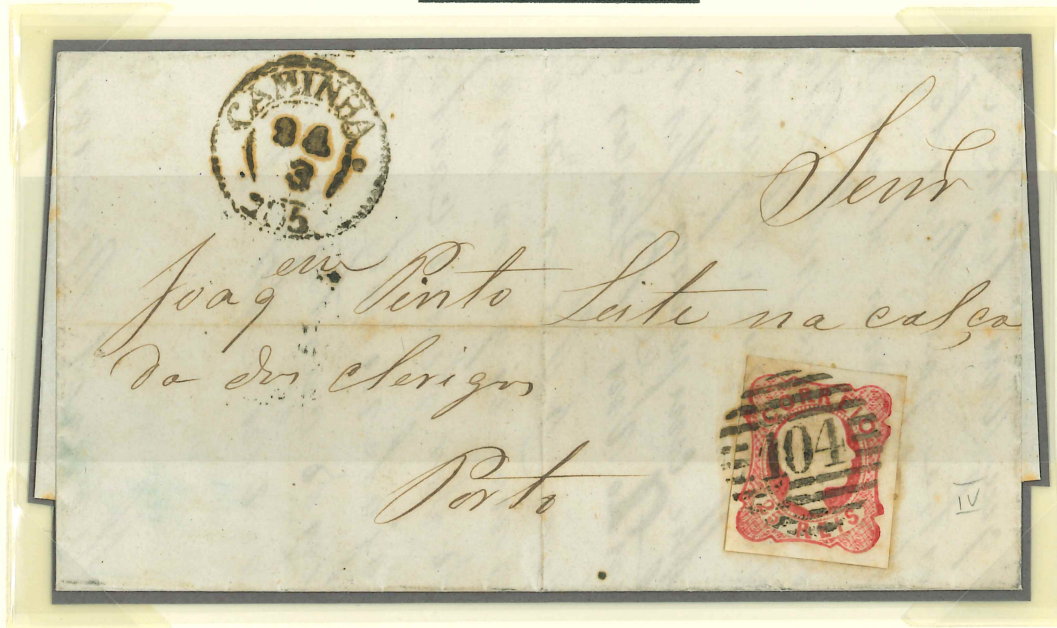 CAMINHA
24
3
Senr
Joaqem Pinto Leite na calça
da dos clerigos
Porto
CORREIO
104
REIS
IV